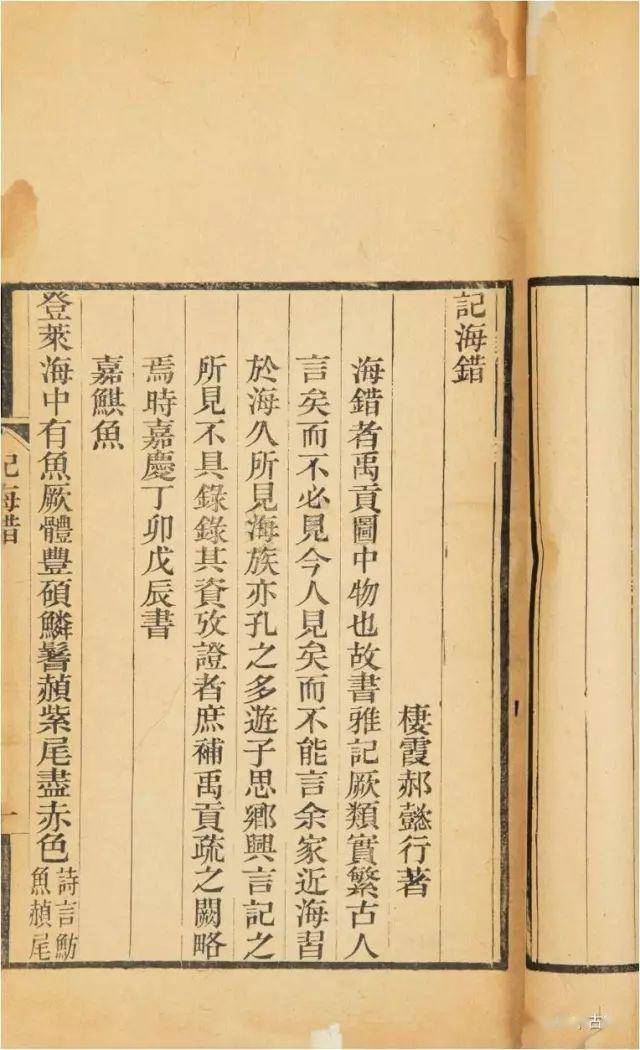 記海錯
棲霞郝懿行著
海錯者禹貢圖中物也故書雅記厥類實繁古人
言矣而不必見今人見矣而不能言余家近海習
於海久所見海族亦孔之多遊子思鄉興言記之
所見不具錄錄其資攷證者庶補禹貢疏之闕略
焉時嘉慶丁卯戊辰書
嘉鯕魚
登萊海中有魚厥體豐碩鱗鬐赬紫尾盡赤色詩言魴
魚赬尾
記海錯
一
古